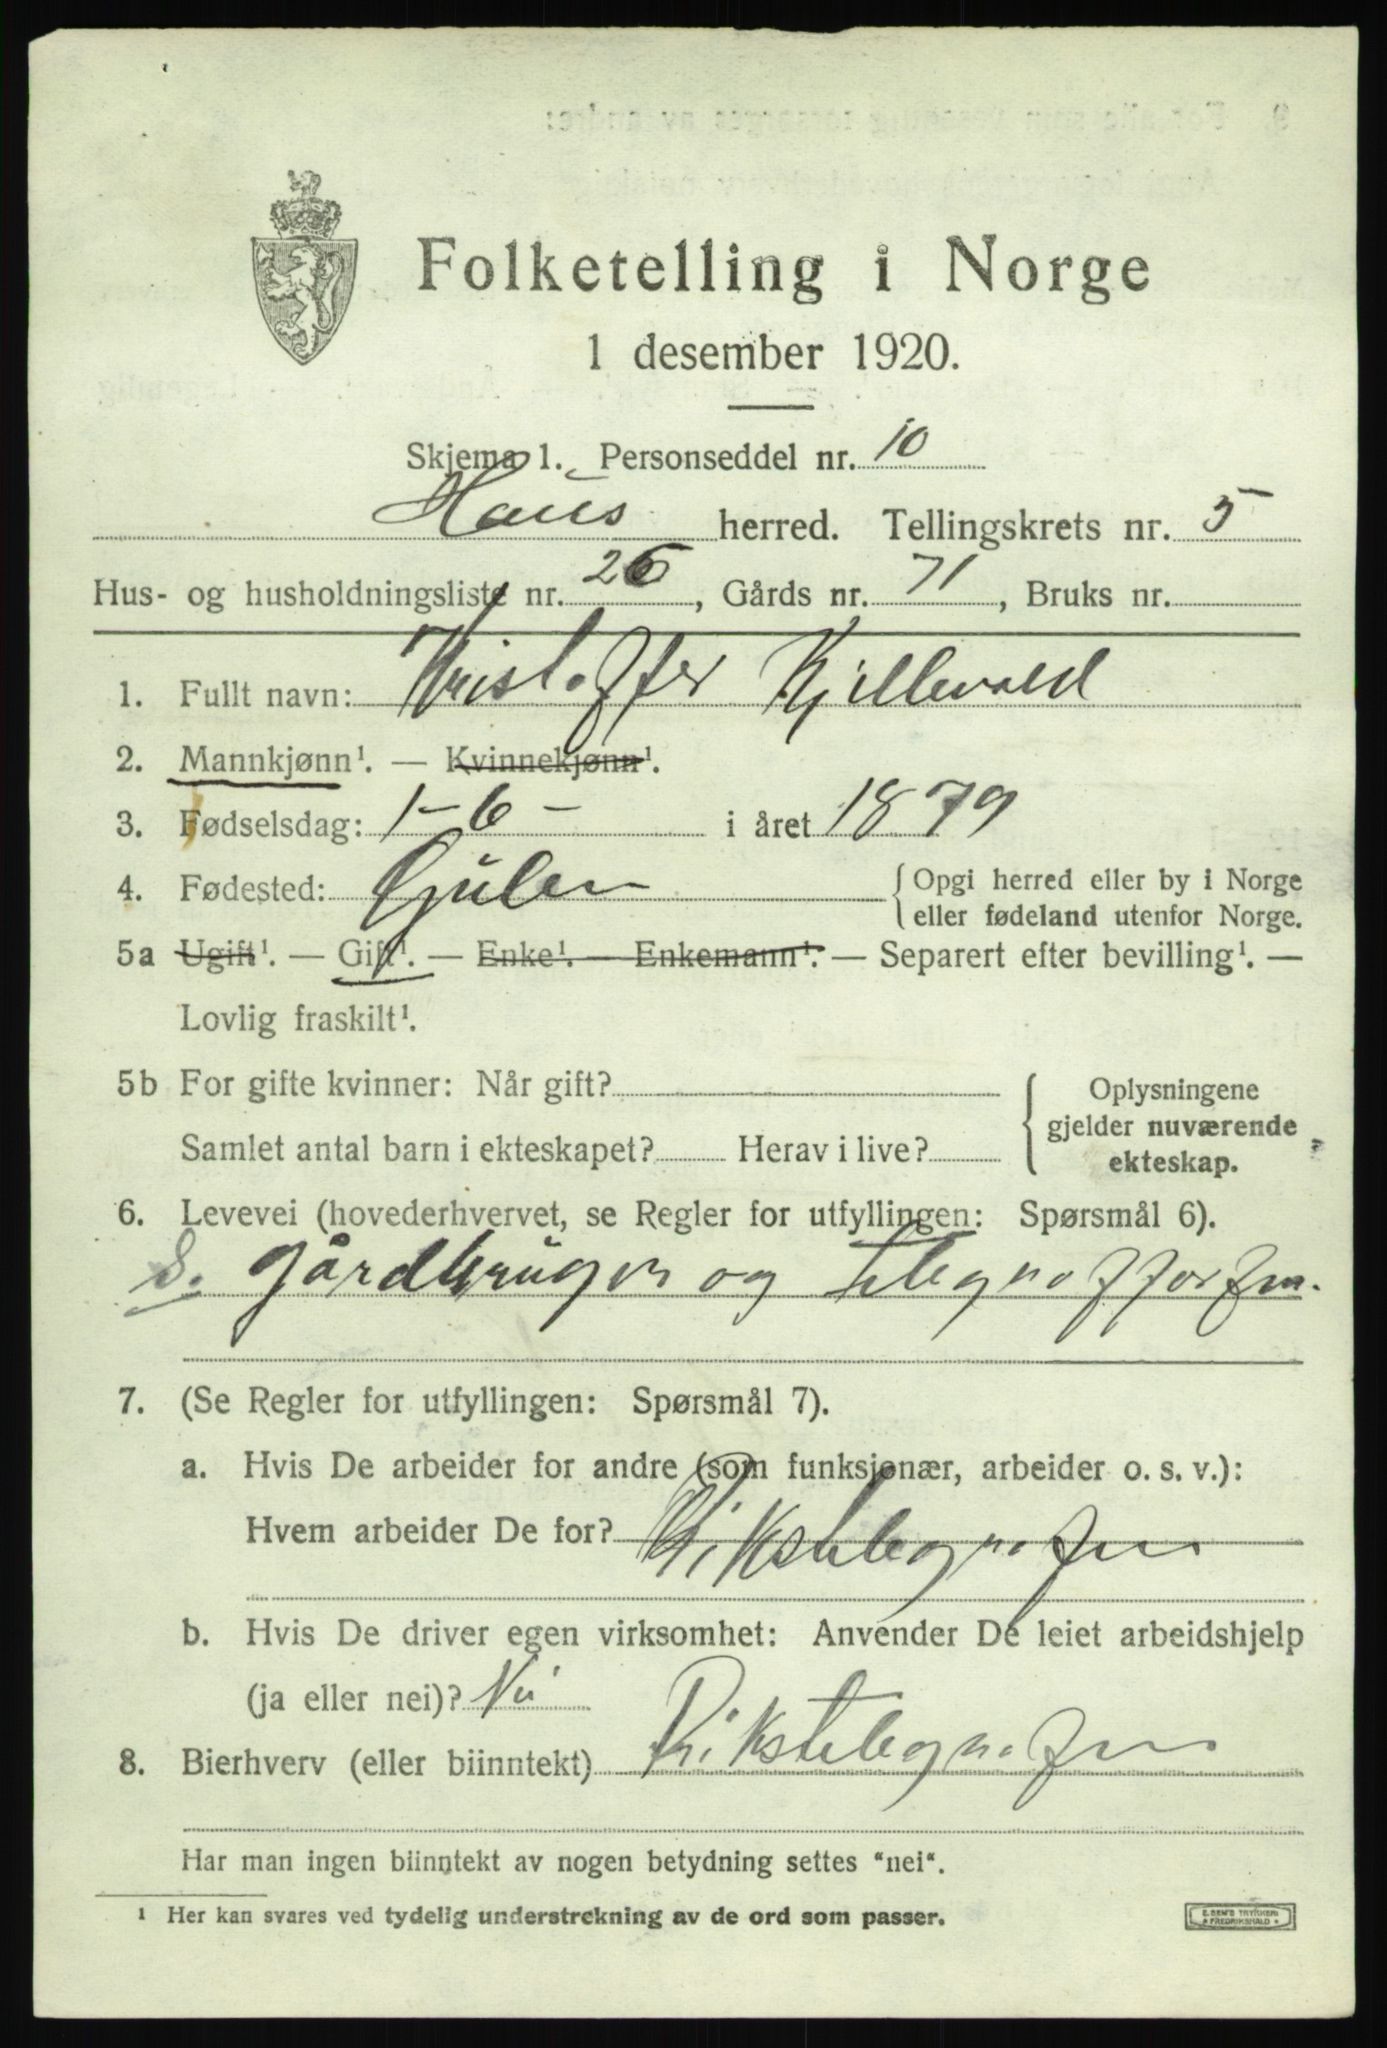 Folketelling i Norge
1 desember 1920.
Skjema 1. Personseddel nr. 10
Haus herred. Tellingskrets nr. 5
Hus- og husholdningsliste nr. 26, Gårds nr. 71, Bruks nr.
1. Fullt navn: Kristoffer Kjellevold
2. Mannkjønn¹. — Kvinnekjønn¹.
3. Fødselsdag: 1-6- i året 1879
4. Fødested: Gulen {Opgi herred eller by i Norge
eller fødeland utenfor Norge.
5a Ugift¹. — Gift¹. — Enke¹. — Enkemann¹. — Separert efter bevilling¹. —
Lovlig fraskilt¹.
5b For gifte kvinner: Når gift?
Samlet antal barn i ekteskapet? Herav i live?
Oplysningene
gjelder nuværende
ekteskap.
6. Levevei (hovederhvervet, se Regler for utfyllingen: Spørsmål 6).
S. Gårdbruger og
7. (Se Regler for utfyllingen: Spørsmål 7).
a. Hvis De arbeider for andre (som funksjonær, arbeider o. s. v.):
Hvem arbeider De for? Rikstelegrafen
b. Hvis De driver egen virksomhet: Anvender De leiet arbeidshjelp
(ja eller nei)? Nei
8. Bierhverv (eller biinntekt) Rikstelegrafen
Har man ingen biinntekt av nogen betydning settes "nei".
¹ Her kan svares ved tydelig understrekning av de ord som passer.